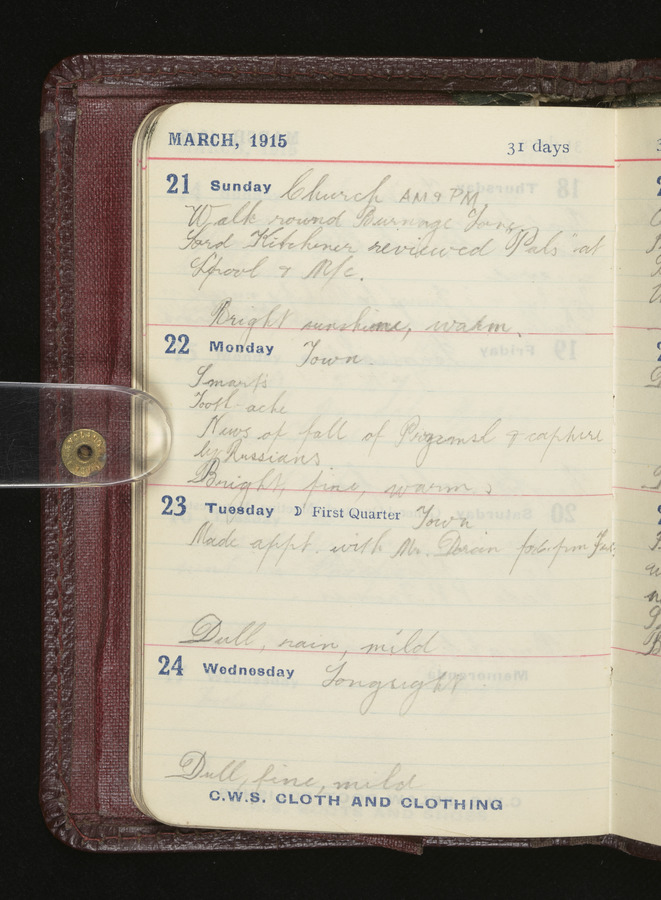 MARCH, 1915 31 days
21 Sunday Church AM & PM
Walk round Burnage Lane
Lord Kitchener reviewed "Pals" at
L'pool & M/c.
Bright sunshine, warm.
22 Monday Town.
Smarts
Tooth ache
News of fall of & capture
by Russians
Bright, fine, warm
23 Tuesday First Quarter Town
Made appt. with Mr. for 6.pm
Dull, rain, mild
24 Wednesday Longsight.
Dull, fine, mild
C.W.S. CLOTH AND CLOTHING